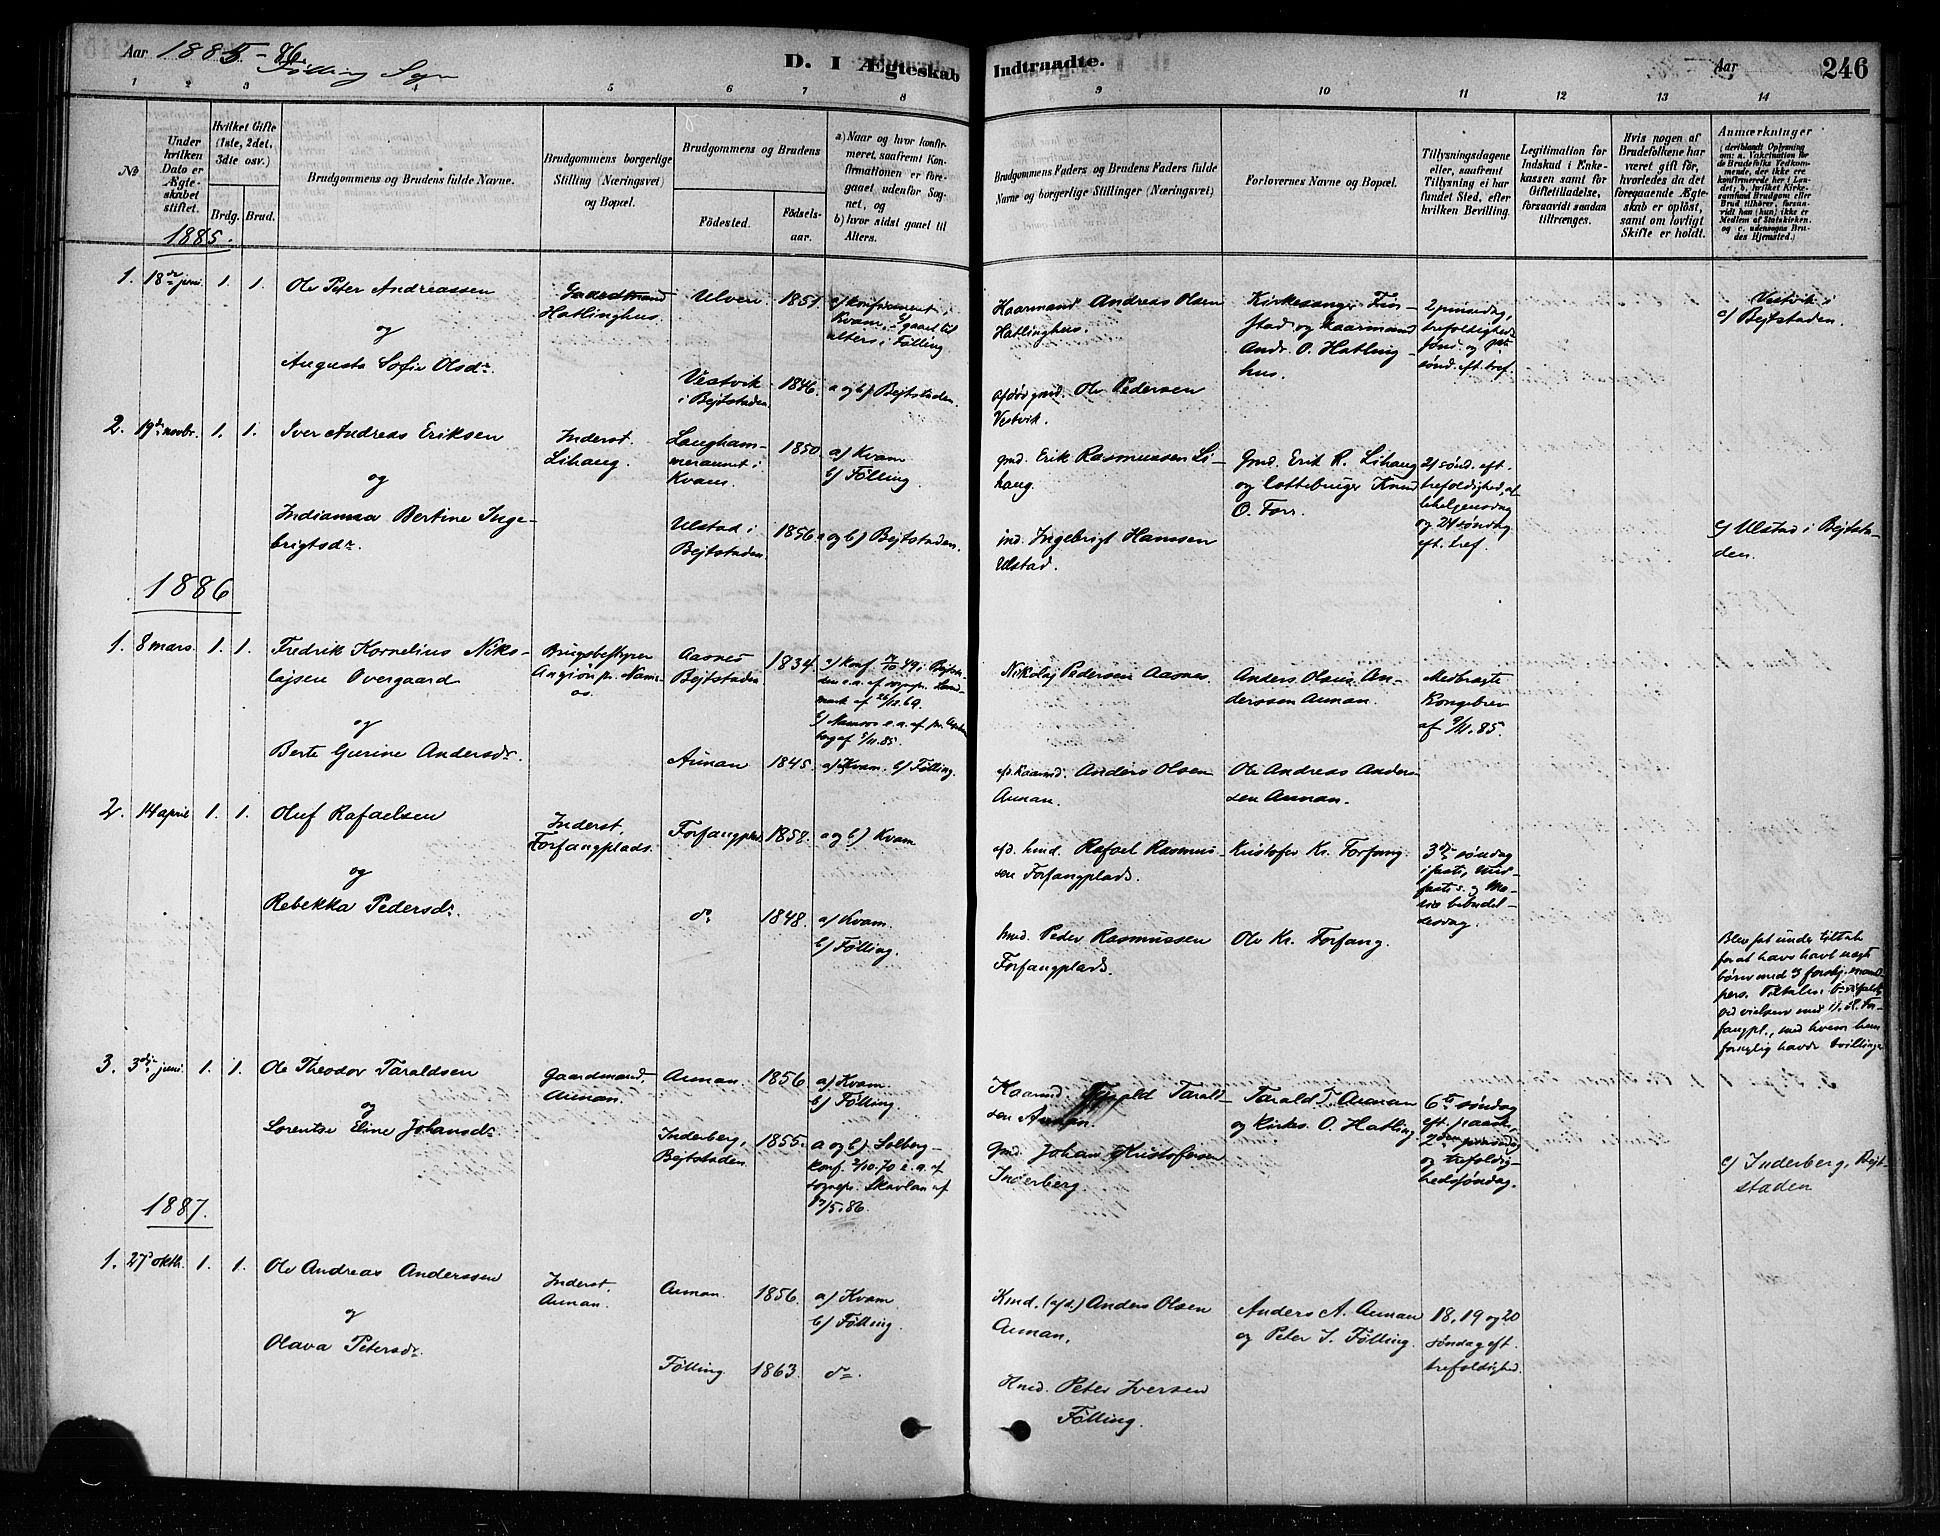 Aar 1885-86.
Følling Sogn
D. I Ægteskab Indtraadte.
Aar
246
1 2 3 4 5 6 7 8 9 10 11 12 13 14
No
Under hvilken Dato er Ægteskabet stiftet.
Hvilket Gifte (1ste, 2det, 3die osv.)
Brdg. Brud.
Brudgommens og Brudens fulde Navne.
Brudgommens borgerlige Stilling (Næringsvei) og Bopæl.
Brudgommens og Brudens
Födested.
Födsels-aar.
a) Naar og hvor konfirmeret, saafremt Konfirmationen er foregaaet udenfor Sognet, og
b) hvor sidst gaaet til Alters.
Brudgommens Faders og Brudens Faders fulde Navne og borgerlige Stillinger (Næringsvei)
Forlovernes Navne og Bopæl.
Tillysningsdagene eller, saafremt Tillysning ei har fundet Sted, efter hvilken Bevilling.
Legitimation for Indskud i Enkekassen samt for Giftetilladelse, forsaavidt saadan tiltrænges.
Hvis nogen af Brudefolkene har været gift för, hvorledes da det foregaaende Ægteskab er oplöst, samt om lovligt Skifte er holdt.
Anmærkninger (deriblandt Oplysning om: a. Vakcination for de Brudefolks Vedkommende, der ikke ere konfirmerede her i Landet; b. hvilket Kirkesamfund Brudgom eller Brud tilhörer, forsaavidt han (hun) ikke er Medlem af Statskirken, og c. udensogns Brudes Hjemsted.)
1885.
1. 18de juni. 1. 1.
Ole Peter Andreassen
og
Augusta Sofie Olsdr.
Gaardmand Hatlinghus.
Ulven 1851.
a) konfirmeret i Kvam, b) gaaet til alters i Følling
Vestvik i Bejtstaden. 1846. a og b) Bejtstaden.
Gaarmand Andreas Olsen Hatlinghus.
Ole Pedersen Vestvik.
Kirkesanger Finstad og Gaarmand Andr. O. Hatlinghus.
2 pinsedag, trefoldigheds sønd. og 1ste sønd. eft. tref.
c) Vestvik i Bejtstaden.
2. 19de novbr. 1. 1.
Iver Andreas Eriksen
og
Indianna Bertine Ingebrigtsdr.
Inderst. Lihaug.
Langhammeraunet i Kvam 1850 a) Kvam b) Følling.
Ulstad i Bejtstaden 1856. a og b) Bejtstaden.
gmd. Erik Rasmussen Lihaug.
ind. Ingebrigt Hansen Ulstad.
Gmd. Erik R. Lihaug og Knud O. Forr.
21 sønd. eft. trefoldighed, allehelgensdag og 24 søndag eft. tref.
c) Ulstad i Bejtstaden.
1886
1. 8 mars. 1. 1.
Fredrik Kornelius Nikolajsen Overgaard
og
Berte Gurine Andersdr.
Brugsbestyrer Namsos.
Aasnes Bejtstaden 1834.
Aunan 1845. a) Kvam. b) Følling.
Nikolaj Pedersen Aasnes.
afd. Gaarmd. Anders Olsen Aunan.
Anders Olaus Anderssen Aunan.
Ole Andreas Andersen Aunan.
Medbragte Kongebrev af 9/11.85.
2. 14 april 1. 1.
Oluf Rafaelsen
og
Rebekka Pedersdr.
Inderst, Forfangplads.
Forfangplads 1858. a og b) Kvam
do 1848. a) Kvam. b) Følling.
afd. hmd. Rafael Rasmussen Forfangplads.
hmd. Peder Rasmussen Forfangplads.
Kristofer Kr. Forfang.
Ole Kr. Forfang.
3die søndag i faste, midfaste s. og Mariæ bebudelsesdag.
Blev sat under tiltale for at have havt uægte børn med 3 forskj. mandpers.
forfangpl., med hvem hun fornylig havde tvillinger
3. 3dje juni. 1. 1.
Ole Theodor Taraldsen
og
Lorentse Eline Johansdr.
Gaardmand, Aunan.
Aunan. 1856 a) Kvam b) Følling.
Inderberg, Bejtstaden 1855. a og b) Solberg konf. 2/10.70 e. a. af sognepr. Skavlan af 17/5.86.
Gaarmd. Tarald Taraldsen Aunan.
Gmd. Johan Kristofersen Inderberg
Tarald T. Aunan og Kirkes. O. Hatling.
6te søndag eft. paaske, 2den pinsedag og trefoldighedssøndag.
c) Inderberg, Bejtstaden
1887.
1. 27de oktb. 1. 1.
Ole Andreas Anderssen
og
Olava Petersdr.
Inderst. Aunan.
Aunan. 1856. a) Kvam. b) Følling.
Følling 1863. do.
Hmd. (afd.) Anders Olsen Aunan.
Hmd. Peter Iversen Følling.
Anders A. Aunan og Peter I. Følling.
18, 19 og 20 søndag eft. trefoldighed.